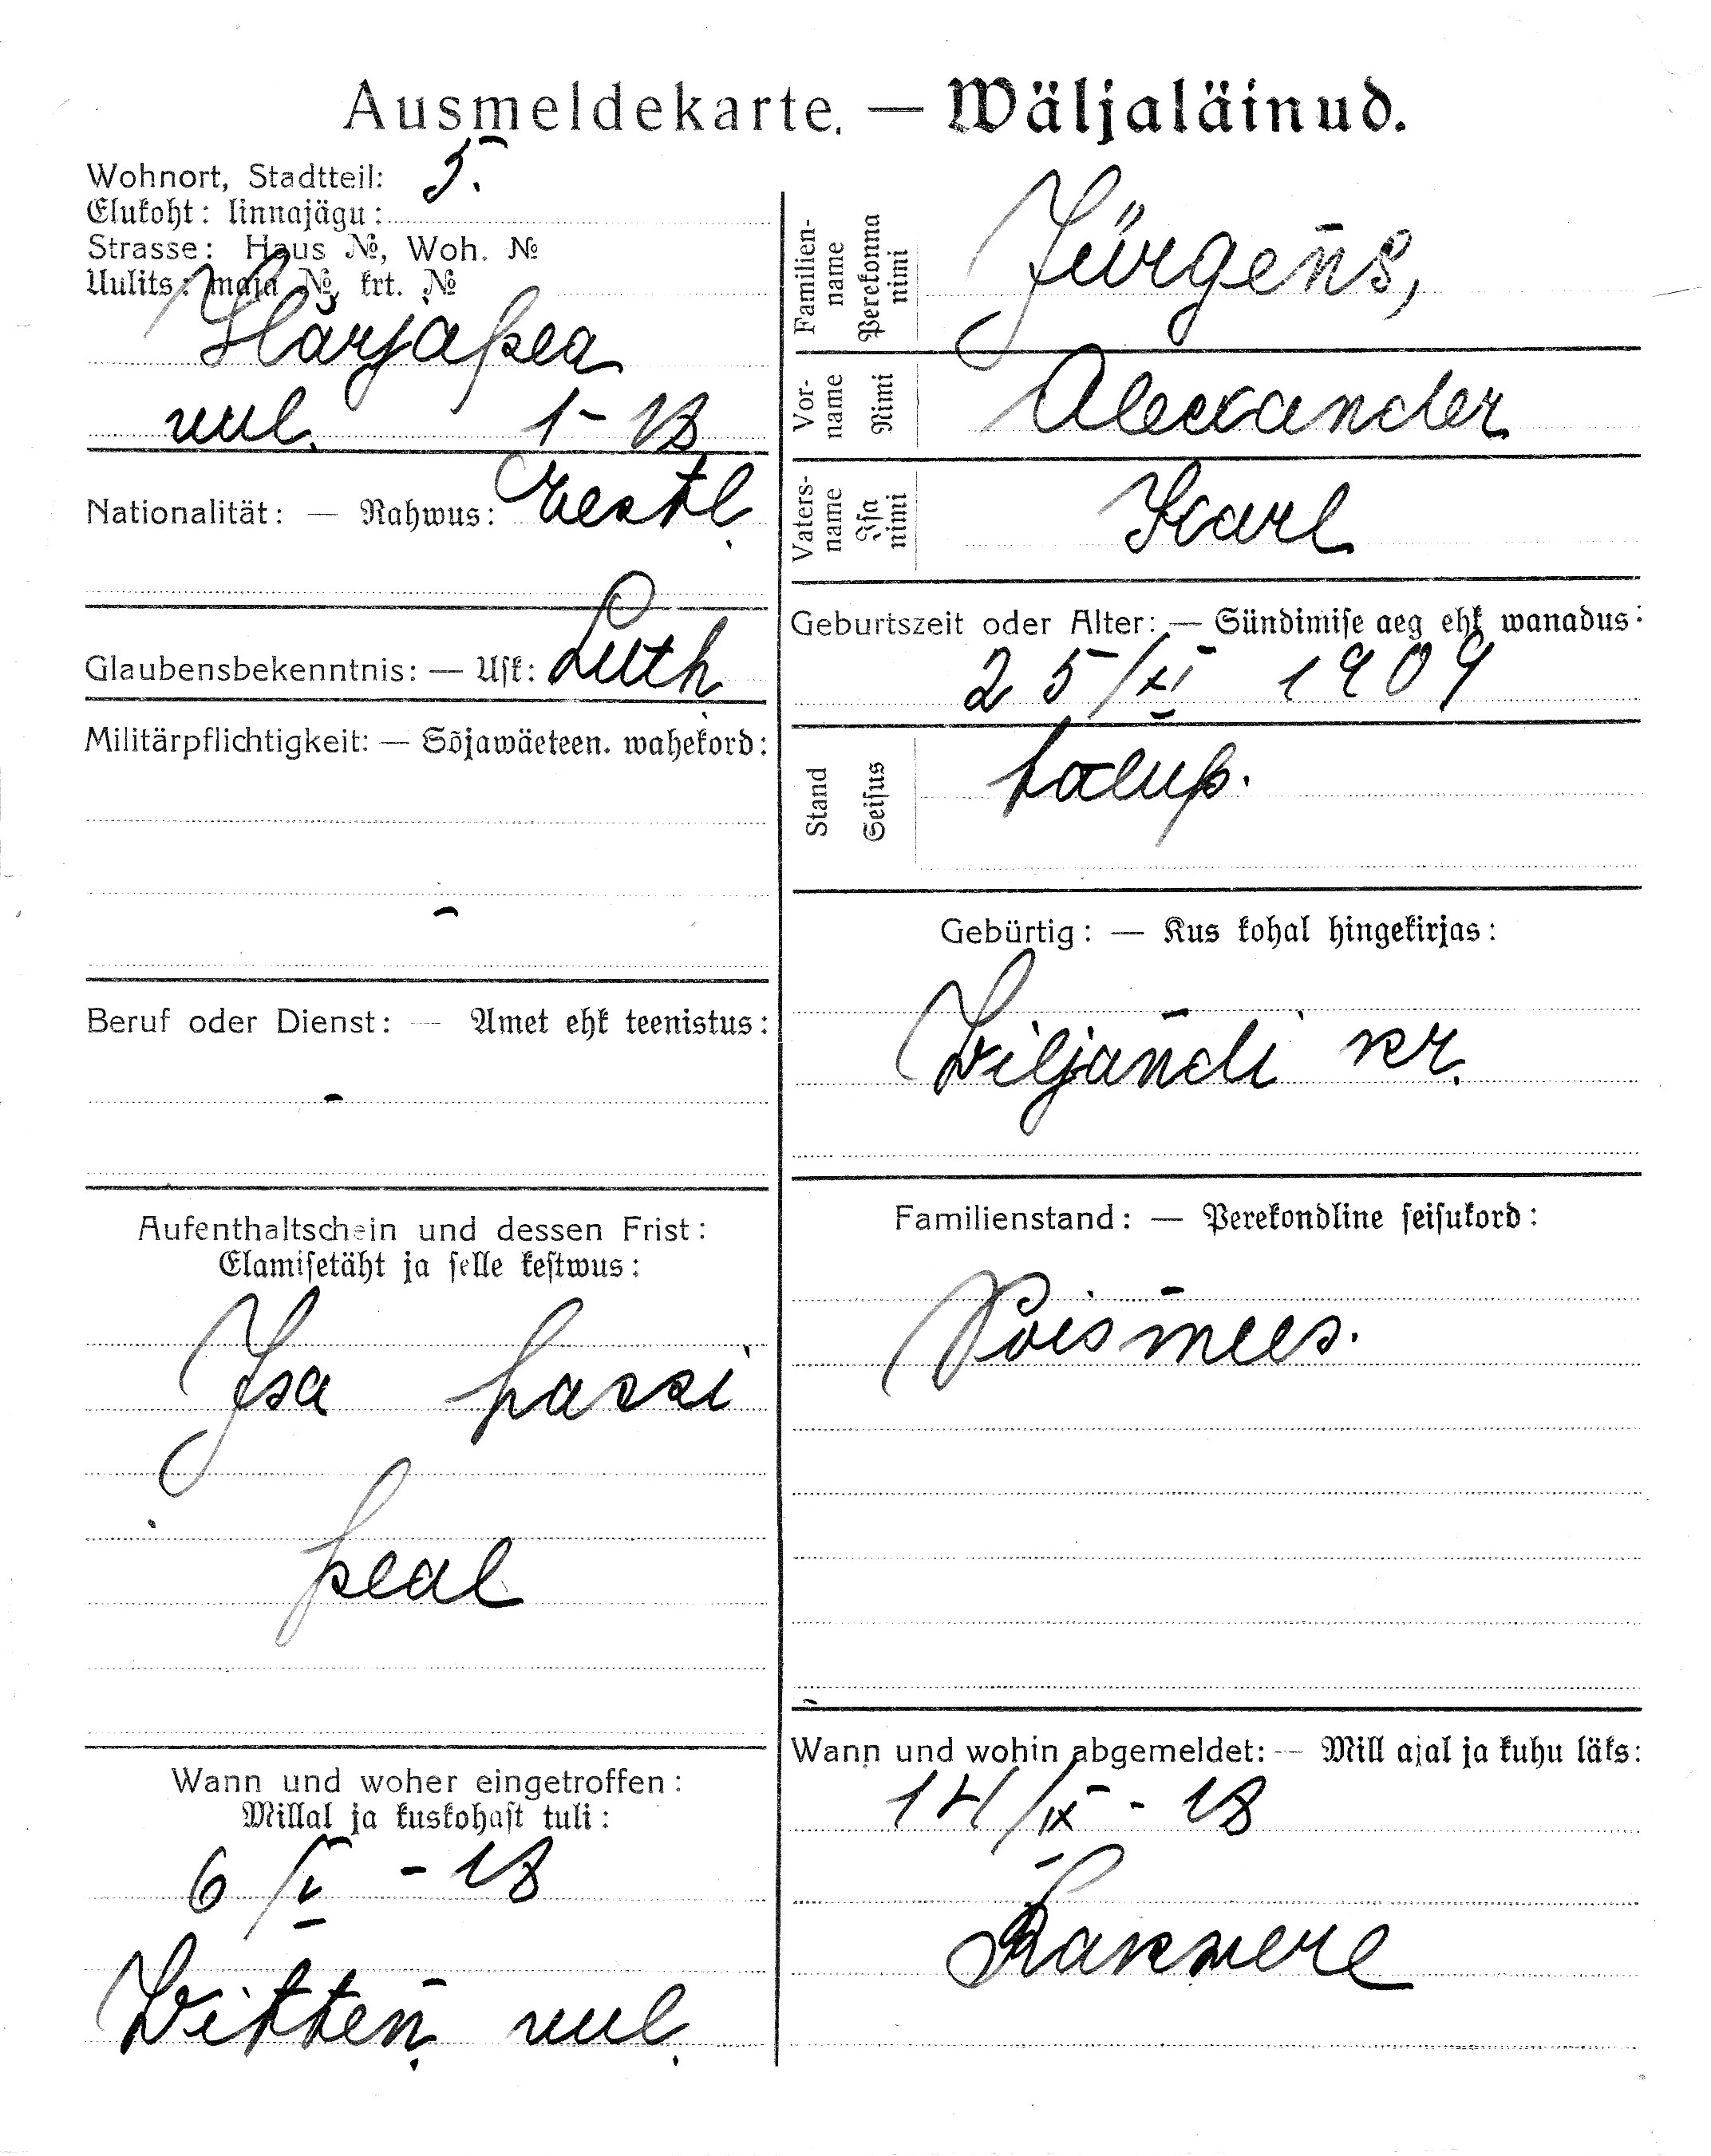 Ausmeldekarte. — Wäljaläinud.
Wohnort, Stadtteil: 5.
Elukoht: linnajägu:
Strasse: Haus №, Woh. №
Uulits: maja №, krt. №
Härjapea
uul. 1-13
Nationalität: — Rahwus: Eestl.
Glaubensbekenntnis: — Usk: Luth.
Militärpflichtigkeit: — Sõjawäeteen. wahekord:
-
Beruf oder Dienst: — Amet ehk teenistus:
-
Aufenthaltschein und dessen Frist:
Elamisetäht ja selle kestwus:
Isa passi
peal
Wann und woher eingetroffen:
Millal ja kuskohast tuli:
6/V - 18
Witten. uul.
Familien-
name
Perekonna
nimi
Jürgens,
Vor-
name
Nimi
Alexander
Vaters-
name
Isa
nimi
Karl
Geburtszeit oder Alter: — Sündimise aeg ehk wanadus:
25/XI 1909
Stand
Seisus
talup.
Gebürtig: — Kus kohal hingekirjas:
Wiljandi kr.
Familienstand: — Perekondline seisukord:
Poismees.
Wann und wohin abgemeldet: — Mill ajal ja kuhu läks:
14/IX - 18
Rakwere